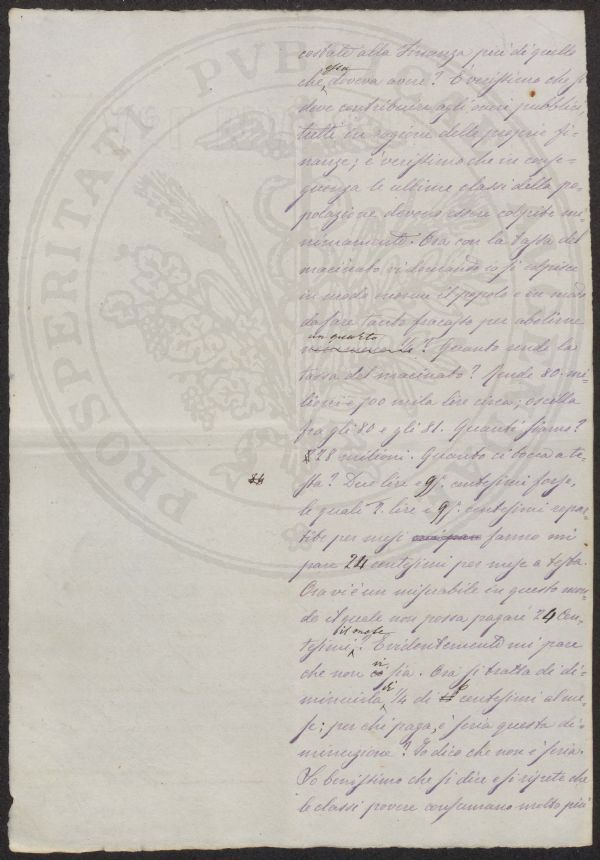 PROSPERITATI PVBLICAE
costate alla Finanza più di quello
essa
che, doveva avere? È verissimo che si
deve contribuire agli oneri pubblici,
tutti in ragione delle proprie fi-
nanze; è verissimo che in conse-
guenza le ultime classi della po-
polazione devono essere colpite mi-
nimamente. Ora con la tassa del
macinato, vi domando io si colpisce
in modo enorme il popolo e in modo
da fare tanto fracasso per abolirne
un quarto
1/4? Quanto rende la
tassa del macinato? Rende 80 mi-
lioni e 500 mila lire circa; oscilla
fra gli 80 e gli 81. Quanti siamo?
28 milioni. Quanto ci tocca a te-
sta? Due lire e 95. centesimi forse,
84
le quali 2. lire e 95. centesimi ripar-
tite per mese fanno mi
pare 24 centesimi per mese a testa.
Ora vi è un miserabile in questo mon-
do il quale non possa pagare 24 cen-
il mese
tesimi? Evidentemente mi pare
che non vi sia. Ora si tratta di di-
minuirla di 1/4 di 6 centesimi al me-
se; per chi paga, è seria questa di-
minuzione? Io dico che non è seria.
So benissimo che si dice e si ripete che
le classi povere consumano molto più